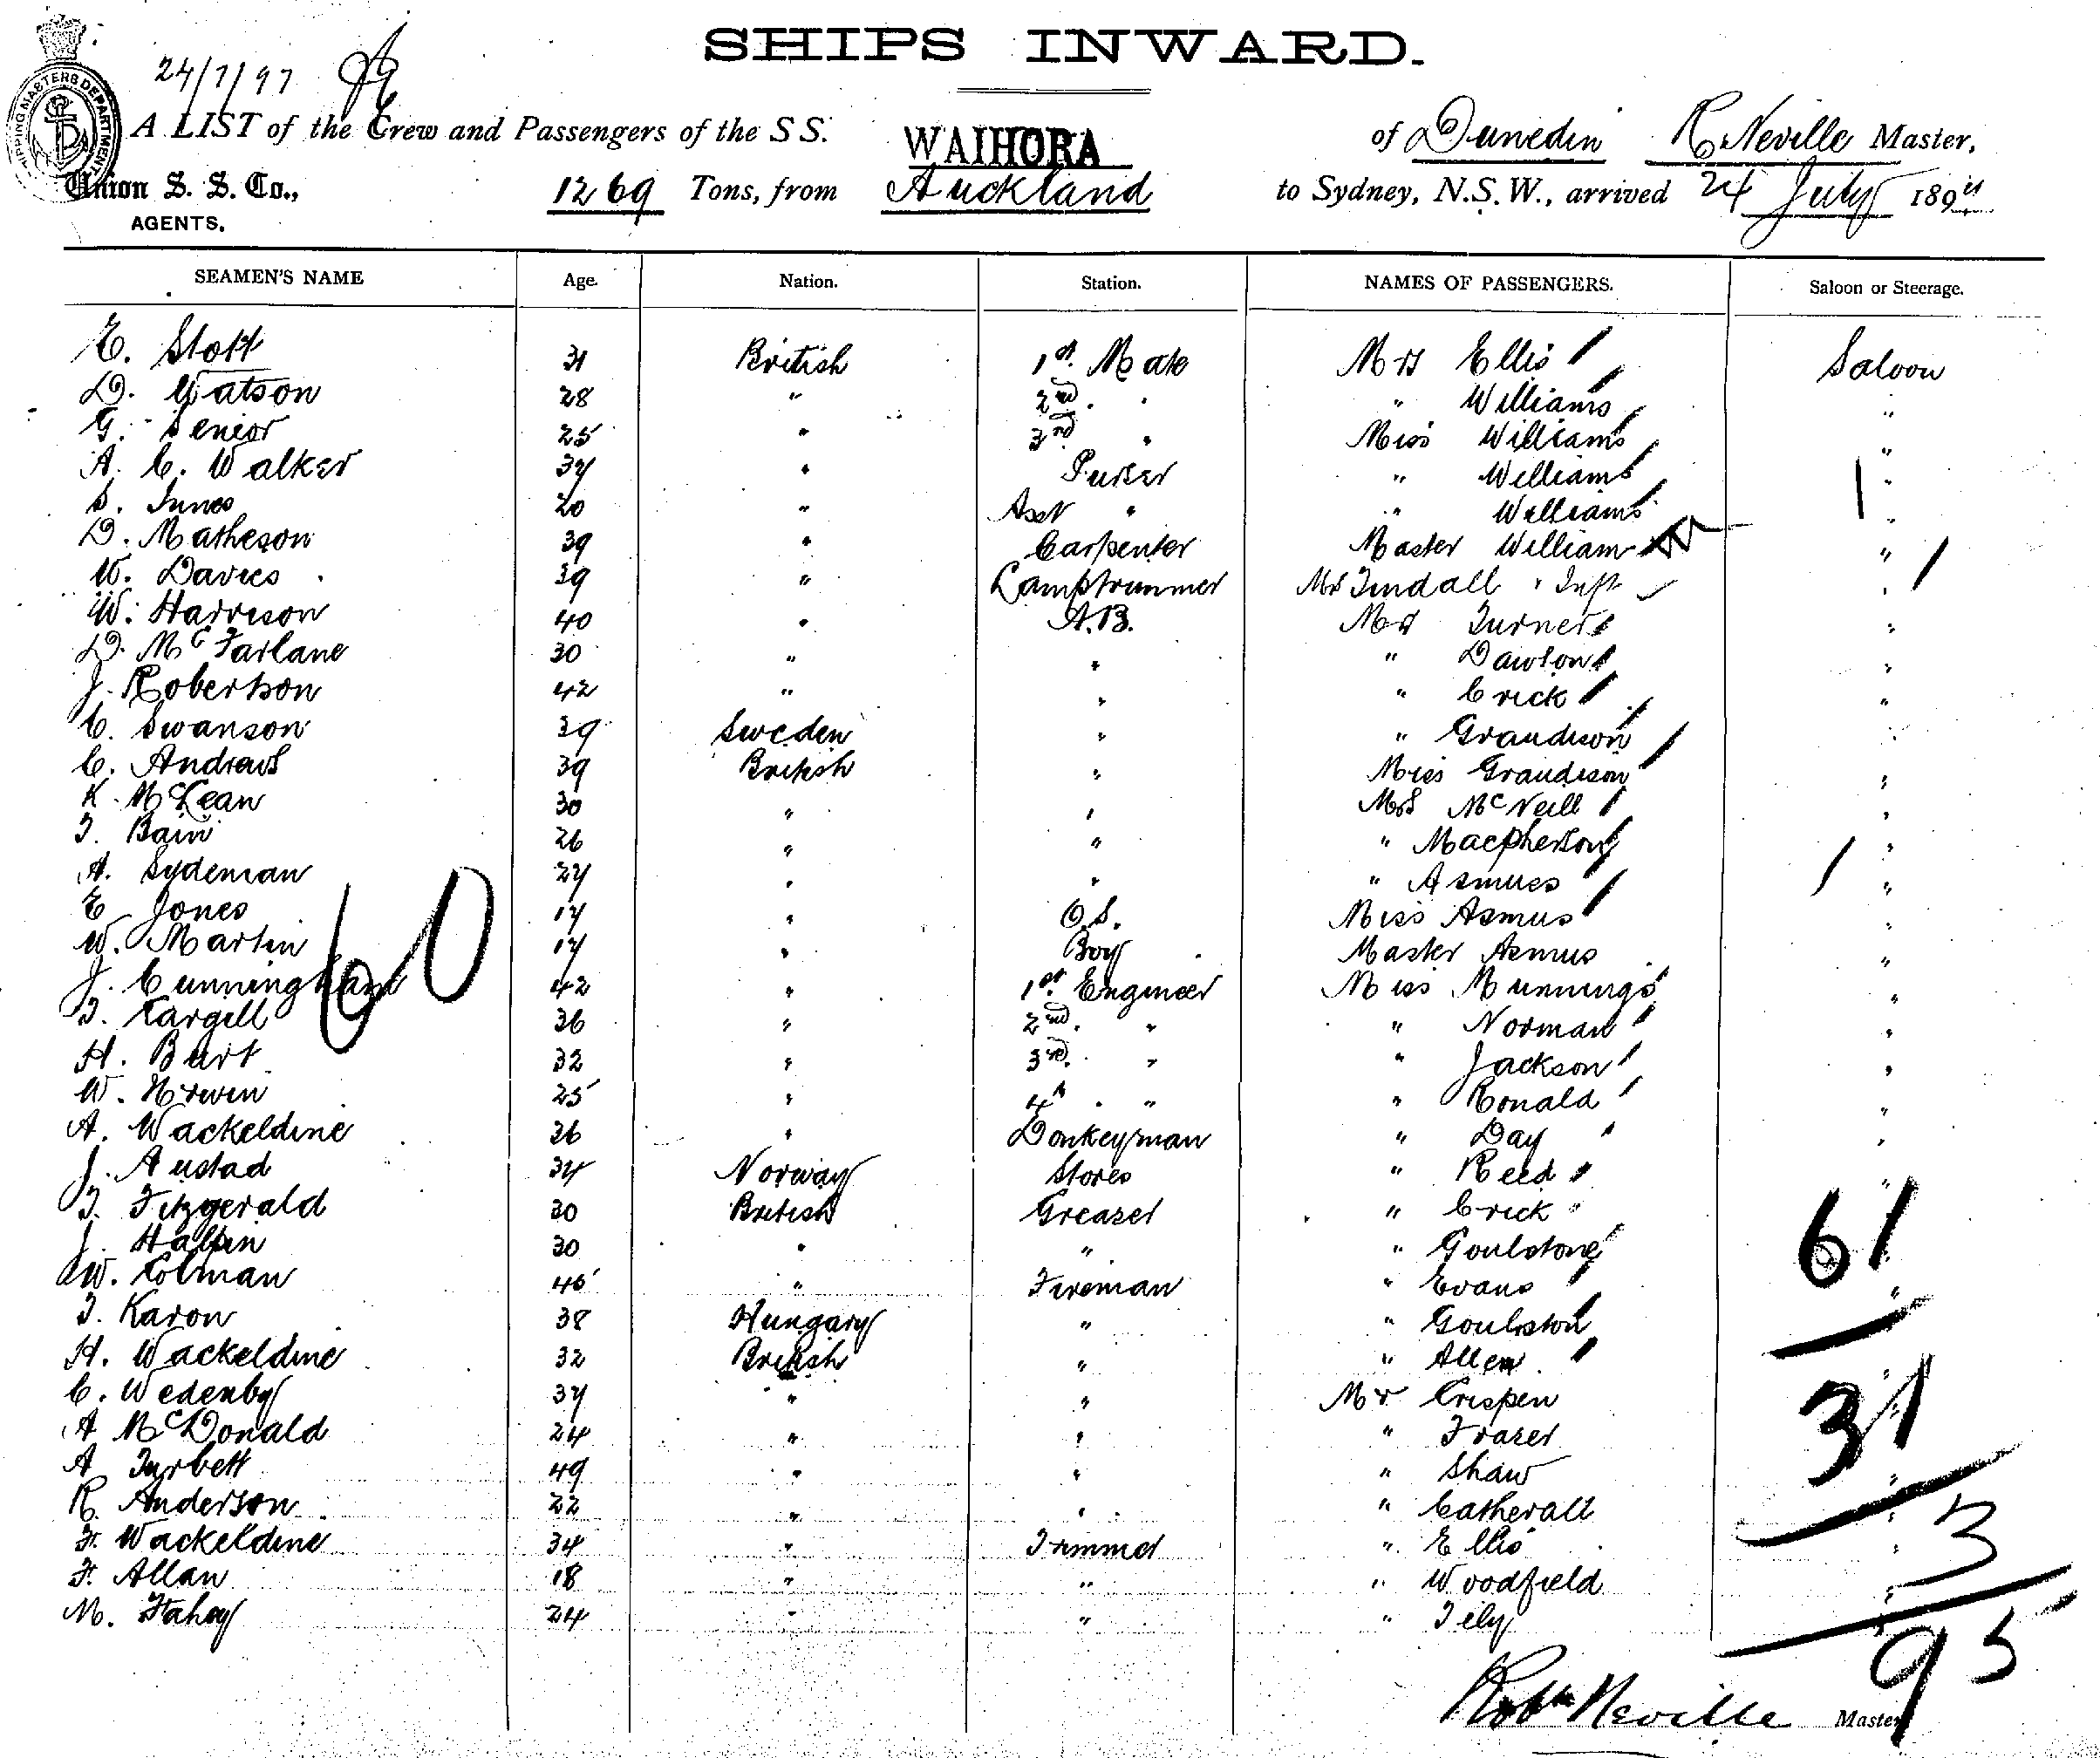 SHIPS INWARD.
24/7/97
SHIPPING MASTERS DEPARTMENT
A LIST of the Crew and Passengers of the S S. WAIHORA of Dunedin R Neville Master,
Union S. S. Co., 1269 Tons, from Auckland to Sydney, N.S.W., arrived 24 July 189
AGENTS.
SEAMEN'S NAME Age. Nation. Station. NAMES OF PASSENGERS. Saloon or Steerage.
E. Stott 31 British 1st. Mate Mrs Ellis Saloon
D. Watson 28 " 2nd. " " Williams "
G. Senior 25 " 3rd " Miss Williams "
A. C. Walker 37 " Purser " Williams "
S. Innes 20 " Asst " " Williams "
D. Matheson 39 " Carpenter Master William "
W. Davies 39 " Lamptrimmer Mrs Tindall & Inft "
W. Harrison 40 " A.B. Mrs Turner "
D. McFarlane 30 " " " Dawson "
J. Robertson 42 " " " Crick "
C. Swanson 39 Sweden " " Grandison "
C. Andrews 39 British " Miss Grandison "
K. McLean 30 " " Mrs McNeill "
T. Bain 26 " " " Macpherson "
A. Sydeman 27 " " " Asmus "
E Jones 17 " O.S. Miss Asmus "
W. Martin 17 " Boy Master Asmus "
J. Cunningham 42 " 1st. Engineer Miss Munnings "
T. Cargill 36 " 2nd. " " Norman "
H. Burt 32 " 3rd. " " Jackson "
W. Irwin 25 " 4th . " " Ronald "
A. Wackeldine 36 " Donkeyman " Day "
J. Austad 34 Norway Stores " Reed "
T. Fitzgerald 30 British Greaser " Crick
J. Halpin 30 " " " Goulstone
W. Colman 45 " Fireman " Evans "
T. Karon 38 Hungary " " Goulston
H. Wackeldine 32 British " " Allen
C. Wedenby 37 " " Mr Crispen "
A McDonald 24 " " " Frazer
A Turbett 49 " " " Shaw "
R. Anderson 22 " " " Catherall "
F. Wackeldine 34 " Trimmer " Ellis "
F. Allan 18 " " " Woodfield "
M. Fahey 24 " " " Tely "
60
61
31
3
95
Robt Neville Master